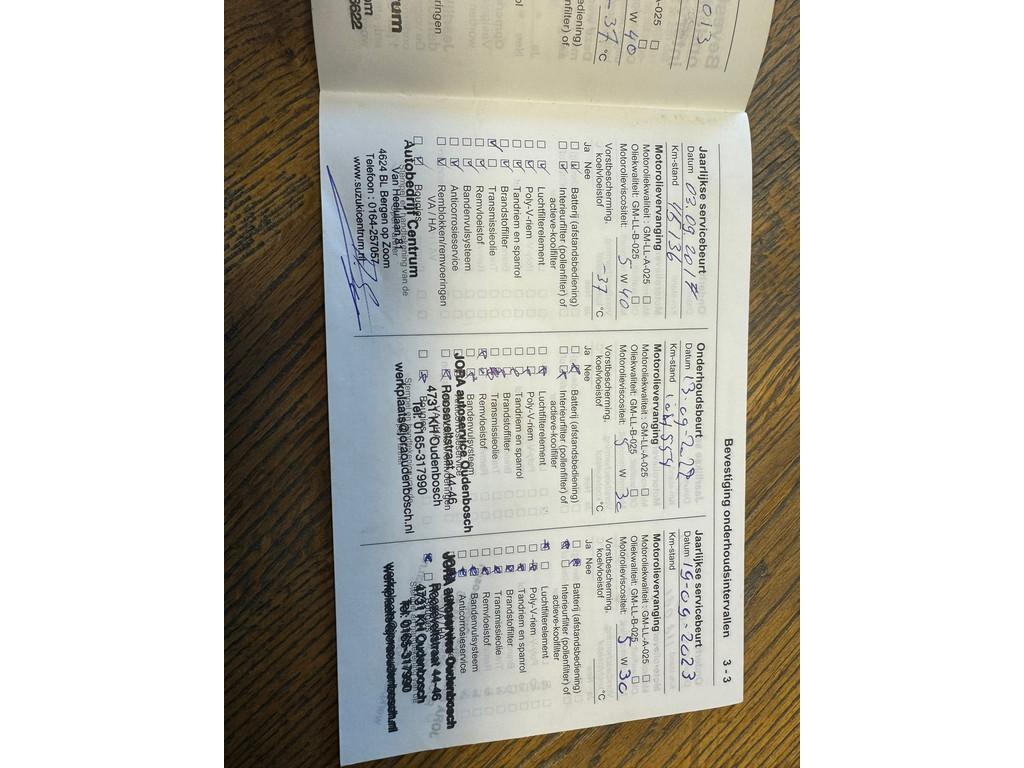 013
A-025
W 40
-37 °C
bediening)
enfilter) of
ol
eringen
trum
om
6622
Bevestiging onderhoudsintervallen
3 - 3
Jaarlijkse servicebeurt
Datum 03.09.2017
Km-stand 45136
Motorolievervanging
Motoroliekwaliteit : GM-LL-A-025
Oliekwaliteit: GM-LL-B-025
Motorolieviscositeit: 5 W 40
Vorstbescherming,
koelvloeistof -37 °C
Ja Nee
Batterij (afstandsbediening)
Interieurfilter (pollenfilter) of
actieve-koolfilter
Luchtfilterelement
Poly-V-riem
Tandriem en spanrol
Brandstoffilter
Transmissieolie
Remvloeistof
Bandenvulsysteem
Anticorrosieservice
Remblokken/remvoeringen
VA / HA
Bougies
Autobedrijf Centrum
4624 BL Bergen op Zoom
Telefoon : 0164-257057
www.suzukicentrum.nl
Onderhoudsbeurt
Datum 13-09-2022
Km-stand
Motorolievervanging
Motoroliekwaliteit : GM-LL-A-025
Oliekwaliteit: GM-LL-B-025
Motorolieviscositeit: 5 W 30
Vorstbescherming,
koelvloeistof °C
Ja Nee
Batterij (afstandsbediening)
Interieurfilter (pollenfilter) of
actieve-koolfilter
Luchtfilterelement
Poly-V-riem
Tandriem en spanrol
Brandstoffilter
Transmissieolie
Remvloeistof
Bandenvulsysteem
JORA autoservice Oudenbosch
Rooseveltstraat 44-46
4731 KH Oudenbosch
Tel: 0165-317990
werkplaats@joraoudenbosch.nl
Jaarlijkse servicebeurt
Datum 19-09-2023
Km-stand
Motorolievervanging
Motoroliekwaliteit : GM-LL-A-025
Oliekwaliteit: GM-LL-B-025
Motorolieviscositeit: 5 W 30
Vorstbescherming,
koelvloeistof °C
Ja Nee
Batterij (afstandsbediening)
Interieurfilter (pollenfilter) of
actieve-koolfilter
Luchtfilterelement
Poly-V-riem
Tandriem en spanrol
Brandstoffilter
Transmissieolie
Remvloeistof
Bandenvulsysteem
Anticorrosieservice
JORA autoservice Oudenbosch
Rooseveltstraat 44-46
4731 KH Oudenbosch
Tel: 0165-317990
werkplaats@joraoudenbosch.nl